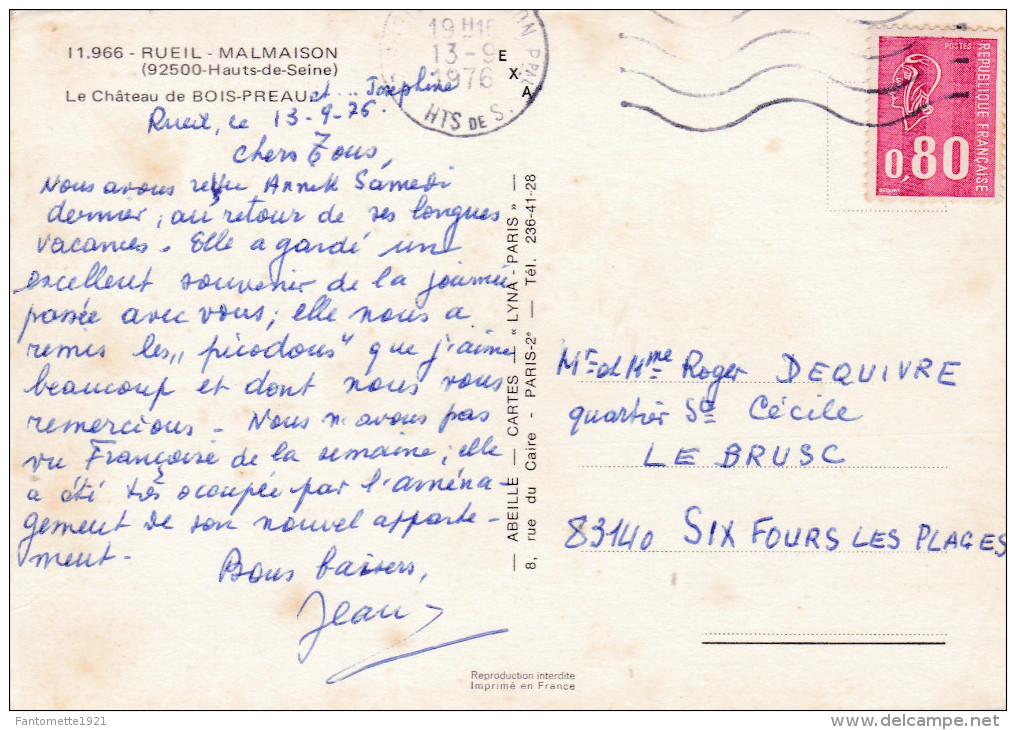 11.966 - RUEIL - MALMAISON
(92500-Hauts-de-Seine)
Le Château de BOIS-PREAU
et... Joséphine
Rueil, le 13-9-76.
Chers Tous,
Nous avons revu Annik Samedi
dernier, au retour de ses longues
vacances. Elle a gardé un
excellent souvenir de la journée
passée avec vous; elle nous a
remis les "picodons" que j'aime
beaucoup et dont nous vous
remercions - Nous n'avons pas
vu Françoise de la semaine; elle
a été très occupée par l'aména-
gement de son nouvel apparte-
ment -
Bons baisers,
Jean
19H15
13-9
1976
HTS DE S.
E
X
A
— ABEILLE — CARTES — « LYNA - PARIS » —
8, rue du Caire - PARIS-2e — Tél. 236-41-28
POSTES
REPUBLIQUE FRANÇAISE
0,80
BEQUET
Mr et Mme Roger DEQUIVRE
quartier Ste Cécile
LE BRUSC
83140 SIX FOURS LES PLAGES
Reproduction interdite
Imprimé en France
Fantomette1921
delcampe.net